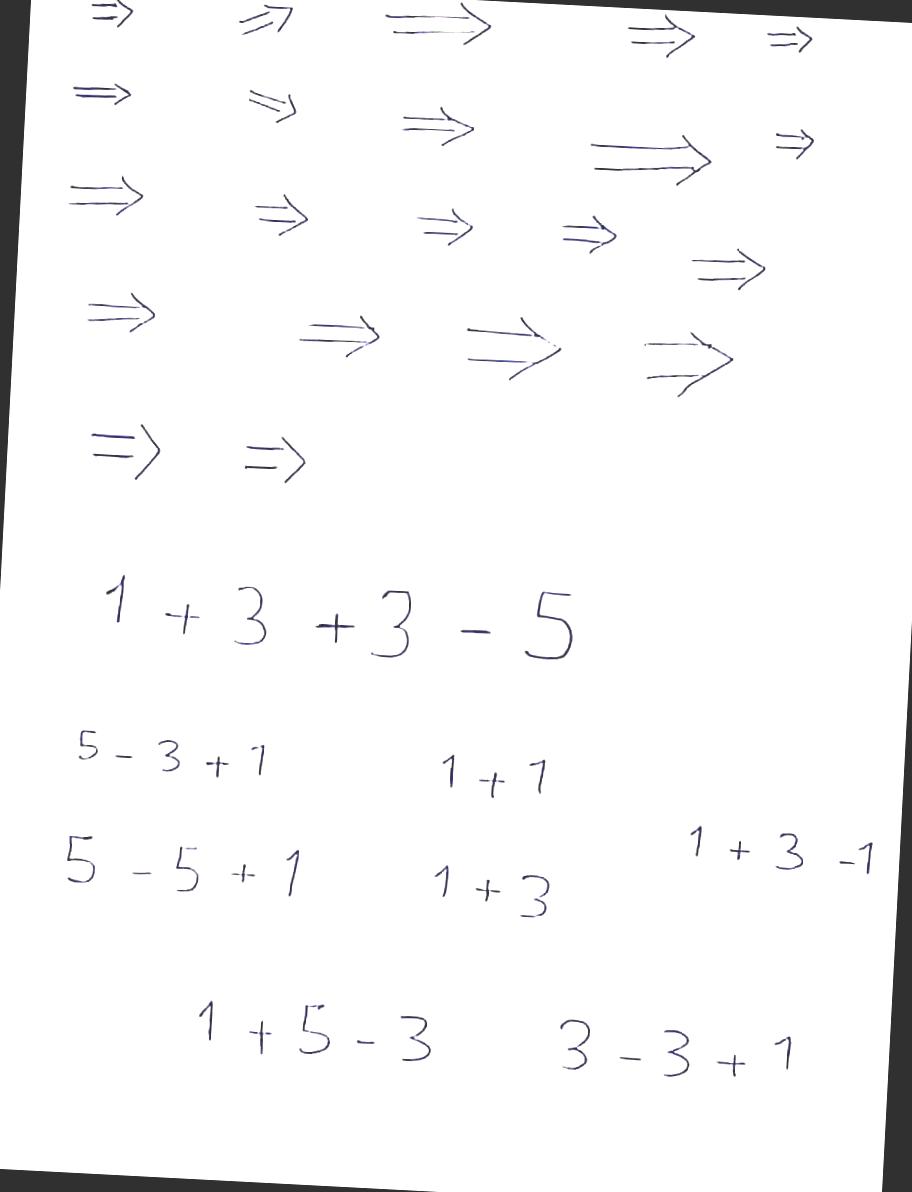 ⇒ ⇒ ⇒ ⇒ ⇒
⇒ ⇒ ⇒ ⇒ ⇒
⇒ ⇒ ⇒ ⇒ ⇒
⇒ ⇒ ⇒ ⇒
⇒ ⇒
1 + 3 + 3 - 5
5 - 3 + 1 1 + 1
5 - 5 + 1 1 + 3 1 + 3 - 1
1 + 5 - 3 3 - 3 + 1